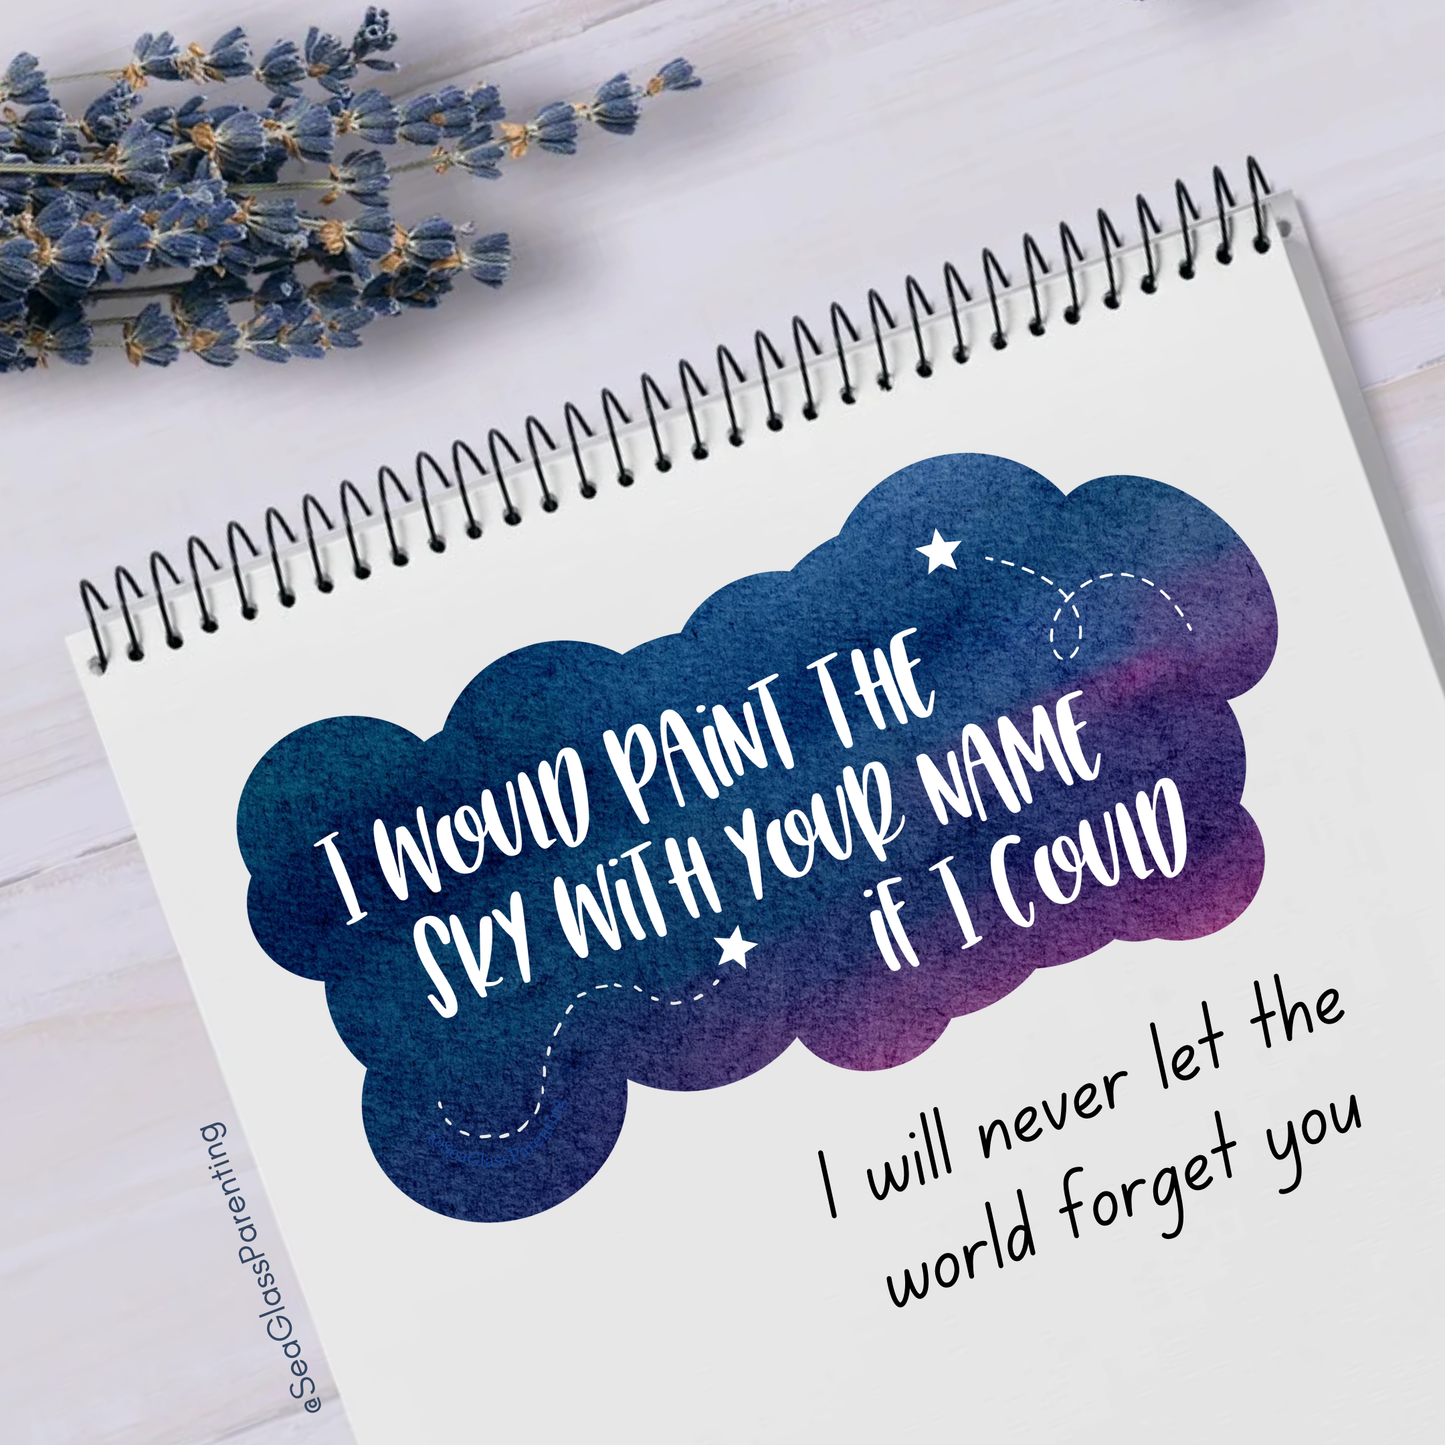 I WOULD PAiNT THE
SKY WiTH YOUR NAME
iF I COULD
I will never let the
world forget you
@SeaGlassParenting